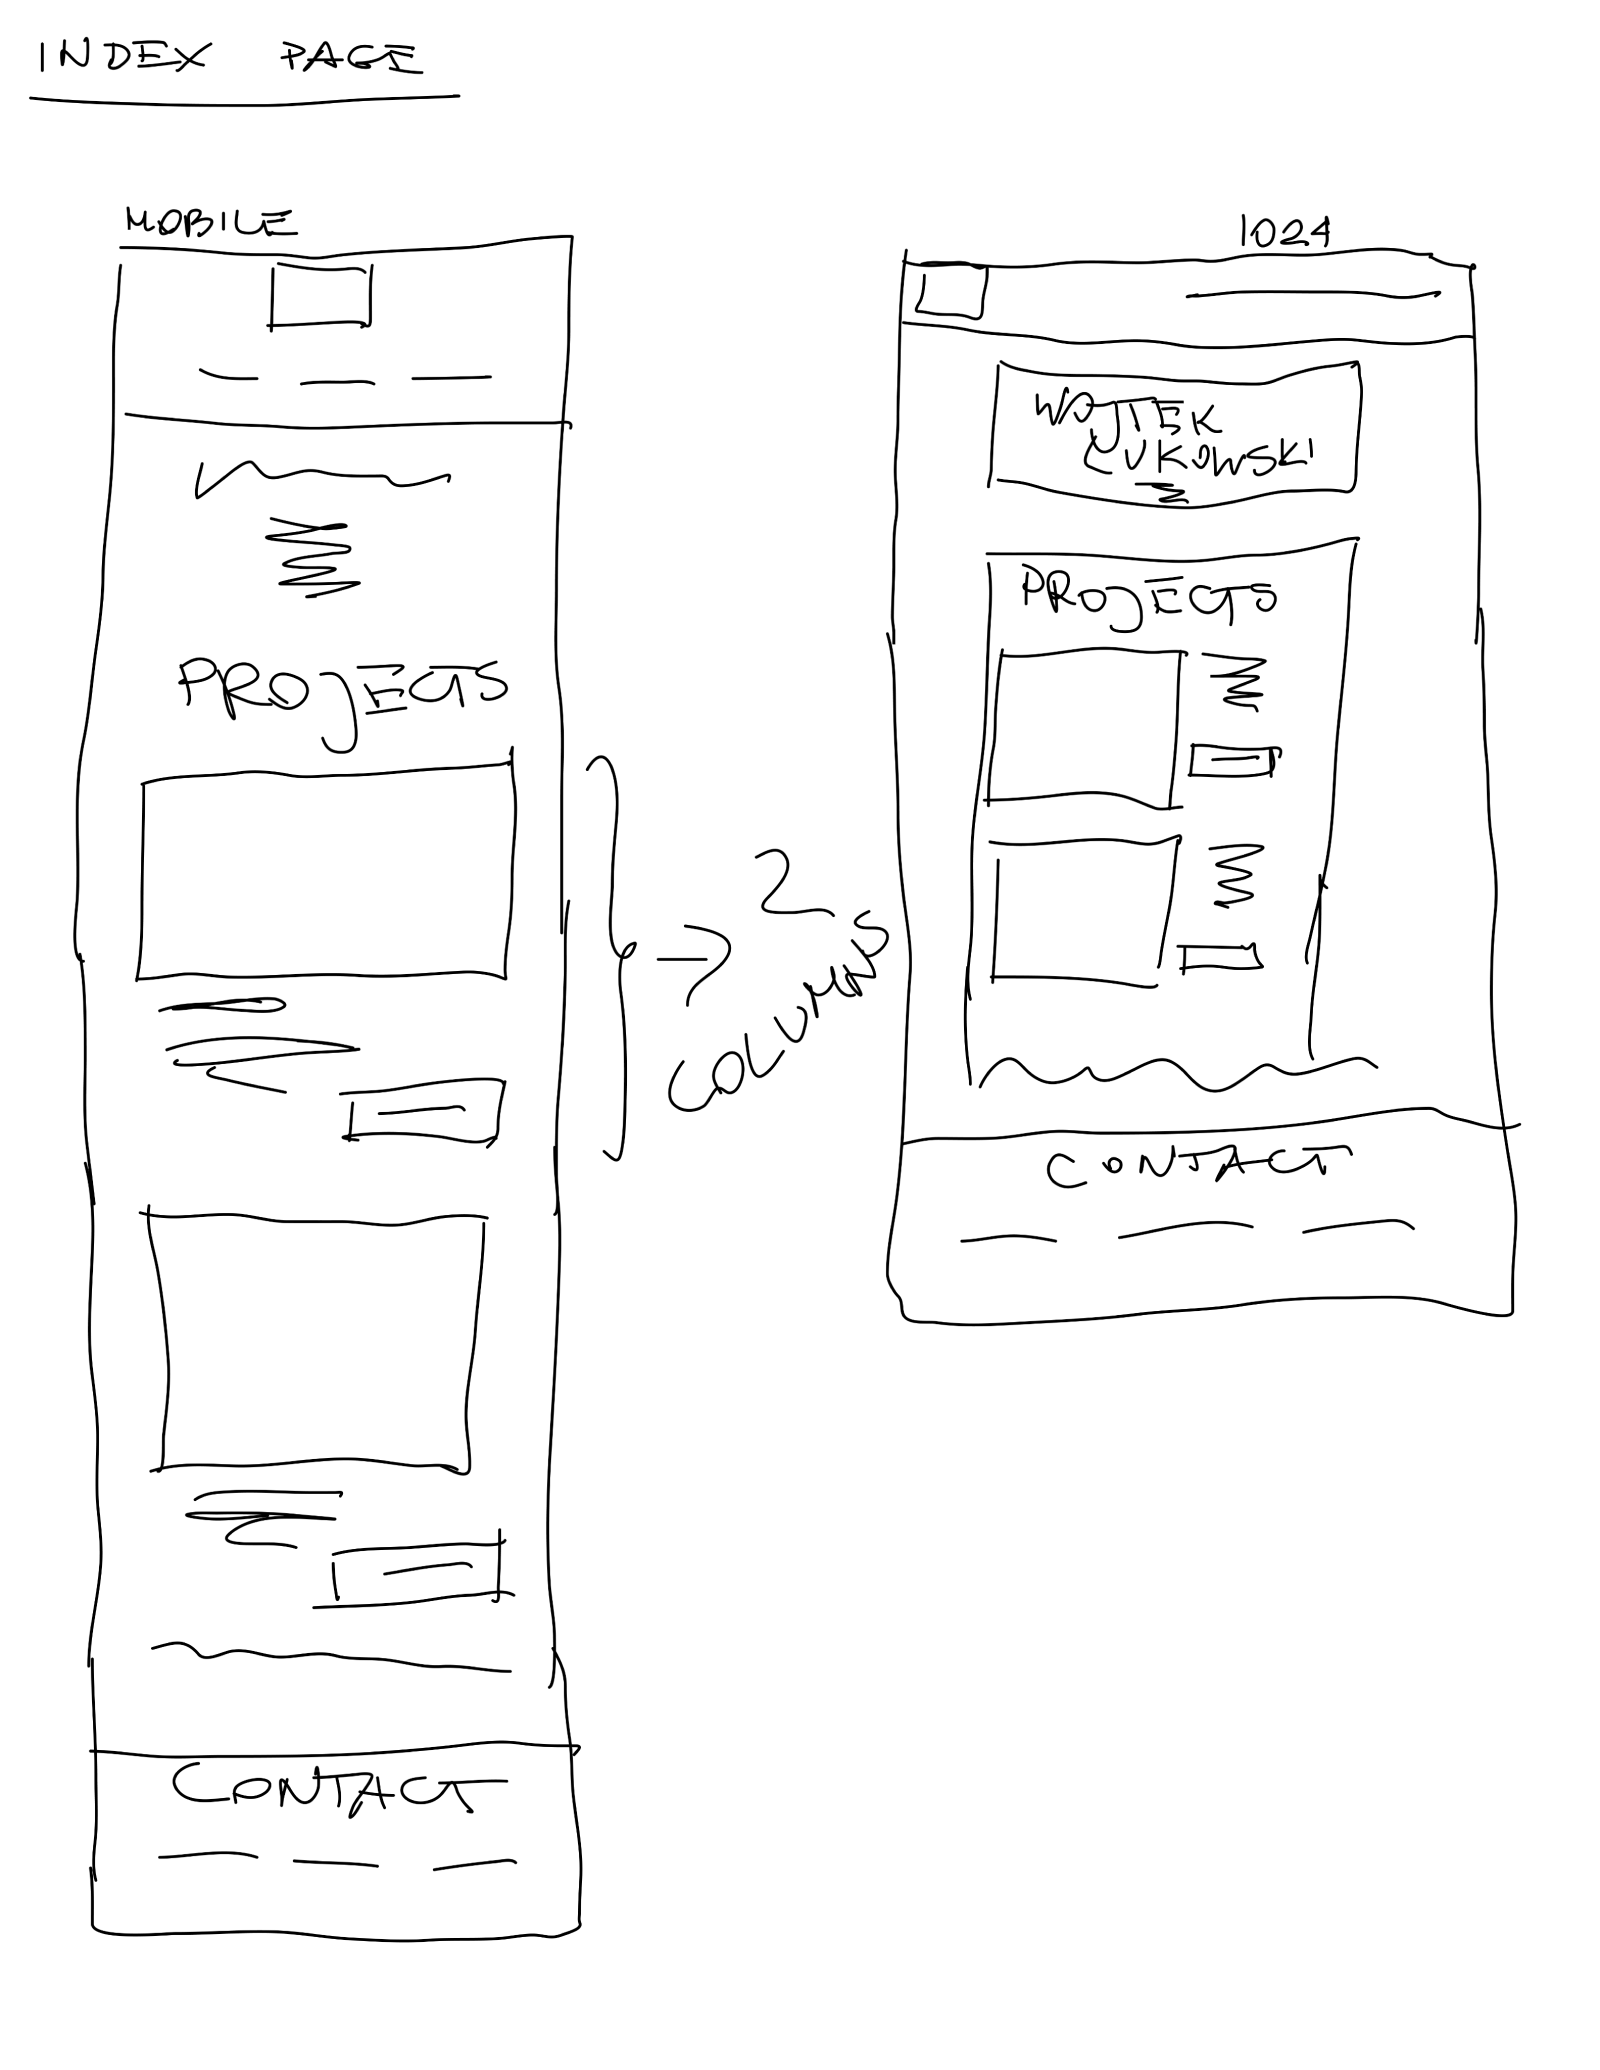 INDEX PAGE
MOBILE
PROJECTS
CONTACT
2
COLUMNS
1024
WOJTEK
ŁUKOWSKI
PROJECTS
CONTACT